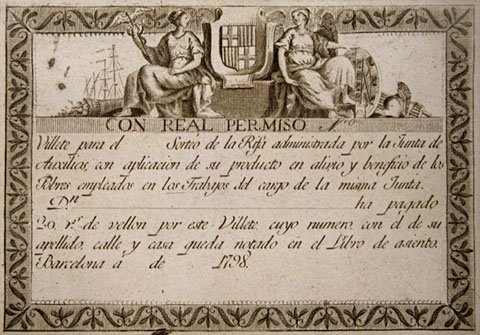 CON REAL PERMISO Nro
Villete para el Sorteo de la Rifa administrada por la Junta de
Auxilios, con aplicacion de su producto en alivio, y beneficio de los
Pobres empleados en los Trabajos del cargo de la misma Junta.
Dn ha pagado
20 rs. de vellon por este Villete, cuyo numero, con el de su
apellido, calle, y casa queda notado en el Libro de asiento.
Barcelona á de 1798.